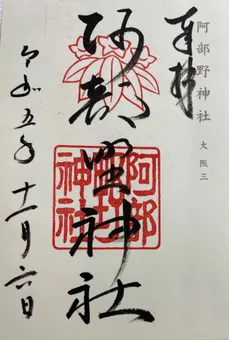 奉拝
阿部野神社
大阪三
阿部野神社
阿部野神社
令和五年十一月六日